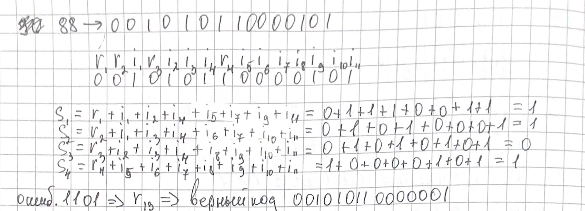 88 → 001010110000101
r₁ r₂ i₁ r₃ i₂ i₃ i₄ r₄ i₅ i₆ i₇ i₈ i₉ i₁₀ i₁₁
0 0 1 0 1 0 1 1 0 0 0 0 1 0 1
S₁ = r₁ + i₁ + i₂ + i₄ + i₅ + i₇ + i₉ + i₁₁ = 0+1+1+1+0+0+1+1 = 1
S₂ = r₂ + i₁ + i₃ + i₄ + i₆ + i₇ + i₁₀ + i₁₁ = 0+1+0+1+0+0+0+1 = 1
S₃ = r₃ + i₂ + i₃ + i₄ + i₈ + i₉ + i₁₀ + i₁₁ = 0+1+0+1+0+1+0+1 = 0
S₄ = r₄ + i₅ + i₆ + i₇ + i₈ + i₉ + i₁₀ + i₁₁ = 1+0+0+0+0+1+0+1 = 1
ошиб. 1101 => => верный код 001010110000001